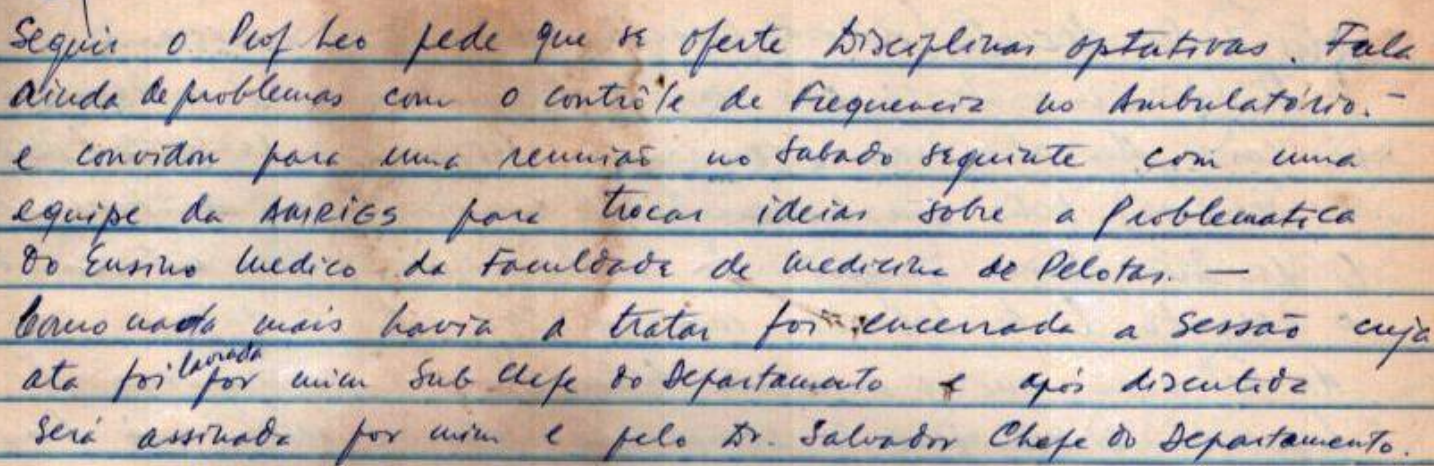 Seguir o Prof Leo pede que se oferte Disciplinas optativas. Fala
ainda de problemas com o contrôle de Frequencia no Ambulatório. -
e convidou para uma reunião no Sabado seguinte com uma
equipe da AMRIGS para trocar ideias sobre a Problematica
do Ensino Medico da Faculdade de Medicina de Pelotas. —
Como nada mais havia a tratar foi encerrada a Sessão cuja
ata foi lavrada por mim Sub Chefe do Departamento e após discutida
Será assinada por mim e pelo Dr. Salvador Chefe do Departamento.